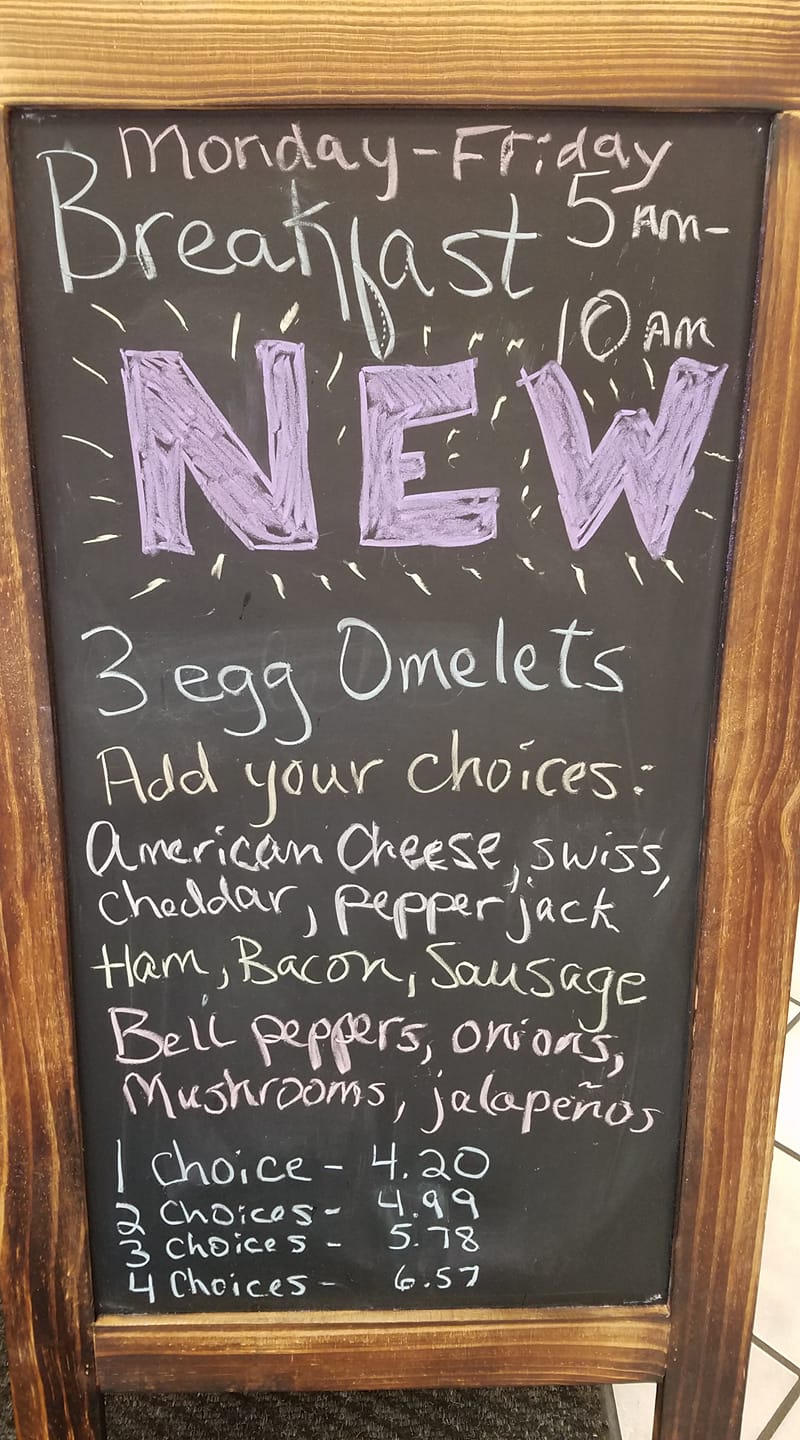 Monday-Friday
Breakfast 5 AM-
10 AM
NEW
3 egg Omelets
Add your choices:
American Cheese, swiss,
cheddar, pepper jack
Ham, Bacon, Sausage
Bell peppers, onions,
Mushrooms, jalapeños
1 choice - 4.20
2 choices - 4.99
3 choices - 5.78
4 Choices - 6.57